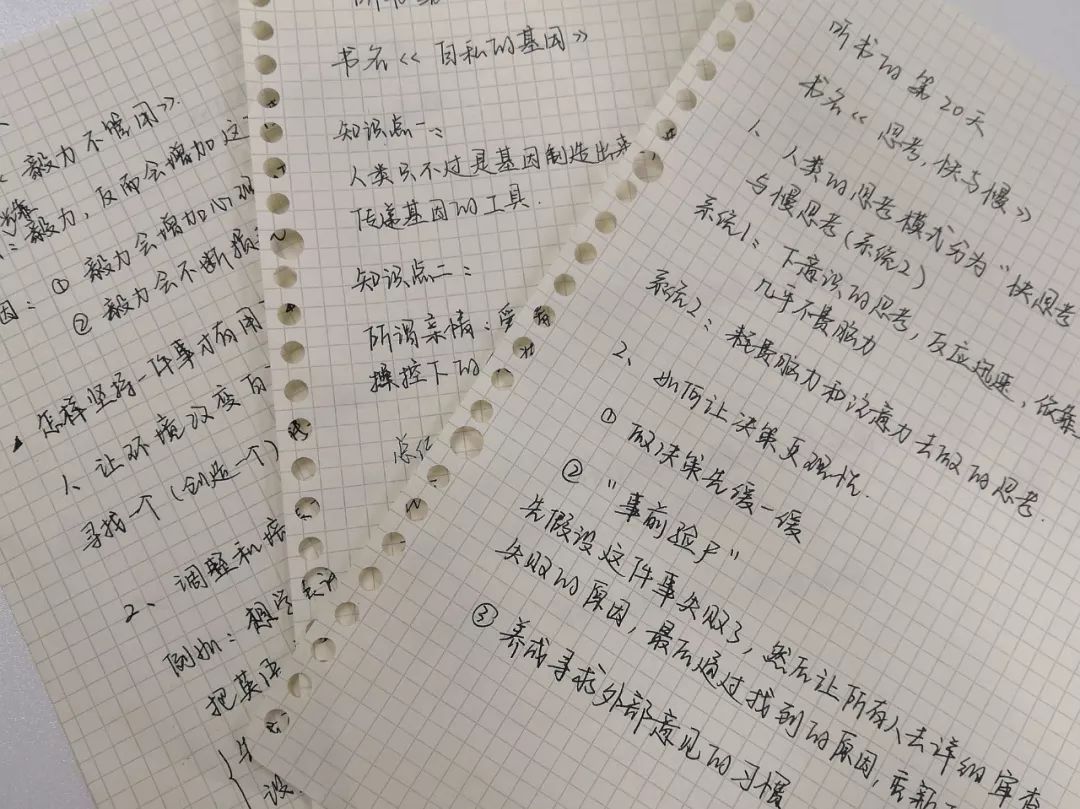 毅力不管用》
毅力,反而会增加这
因:① 毅力会增加心理
② 毅力会不断损
怎样坚持一件事才有用
1、让环境改变自
寻找一个(创造一个)
2、调整和
例如:想学会计
把英语
设
书名《自私的基因》
知识点一:
人类只不过是基因制造出来
传递基因的工具.
知识点二:
所谓亲情:受
操控下的
总结
听书的第20天
书名《思考,快与慢》
1、
人类的思考模式分为“快思考
与慢思考(系统2)
系统1:下意识的思考,反应迅速,依靠
几乎不费脑力
系统2:耗费脑力和注意力去做的思考.
2、如何让决策更理性.
① 做决策先缓一缓
② “事前验尸”
先假设这件事失败了,然后让所有人去详细审查
失败的原因,最后通过找到的原因,重新
③ 养成寻求外部意见的习惯